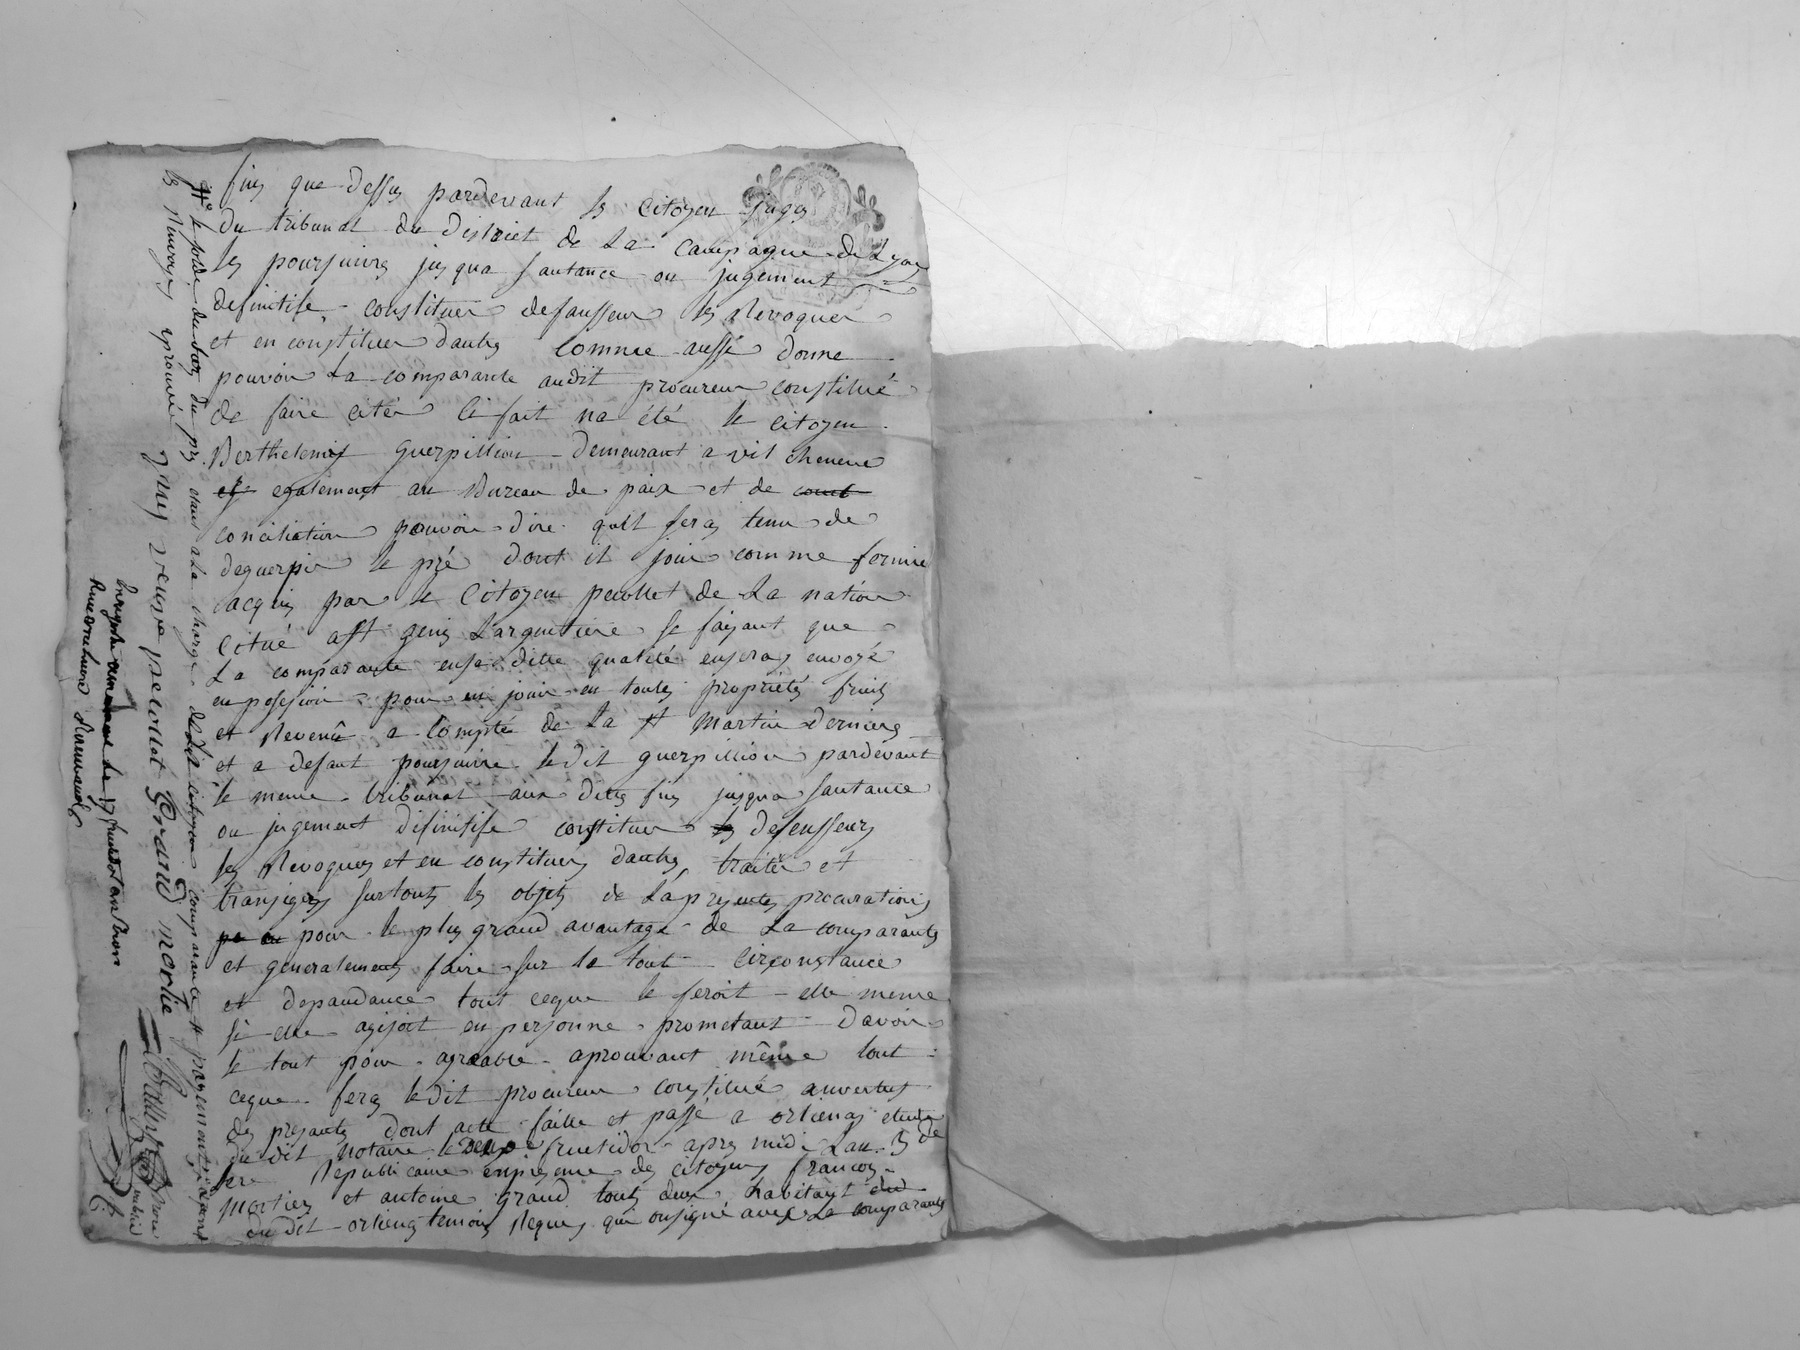 fins que dessus pardevant les citoyen juges
du tribunal du district de la campagne de Lyon
les poursuivre jusqua santance ou jugement
definitife constituer defausseur les Revoquer
et en constituer dautres comme aussi donne
pouvoir La comparante audit procureur constitué
de faire citer ci fait na été le citoyen
Berthelemy guerpillion demeurant a vil cheneve
egalement au Bureau de paix et de
conciliation pouvoir dire quil sera tenu de
deguerpir le pré dont il jouie comme fermie
acquis par le Citoyen peollet de La nation
citué a st genis Largentiere se faisant que
La comparante ensa ditte qualité ensera envoyé
en posesion pour en jouir en toutes propriétés fruits
et Revenu a compté de La st Martin derniere
et a defaut poursuivre ledit guerpillion pardevant
le meme tribunal aux dittes fins jusqua santance
ou jugement difinitife constituer les defensseurs
les Revoques et en constituer dautres, traiter et
transiger surtouts les objets de La presentes procurations
pour le plus grand avantage de La comparante
et generalement faire sur le tout circonstance
et depandance tout ceque le feroit elle meme
si elle agisoit en personne prometant davoir
le tout pour agréable aprouvant même tout
ceque fera ledit procureur constitué auvertus
des presantes dont acte faitte et passé a orlienas etude
du dit notaire le deux fructidor apres midi Lan 3 de
lere Republicaine en presence des citoyens francois
mortier et antoine grand touts deux habitant
du dit orlienas temoins Requis qui onsigné avec La comparante
# le solde du prix dans La charge citoyen comparante # payement
les Renvoyes aprouvé
veuve peollet Grand mortie
Enregistré 17 fructidor an trois